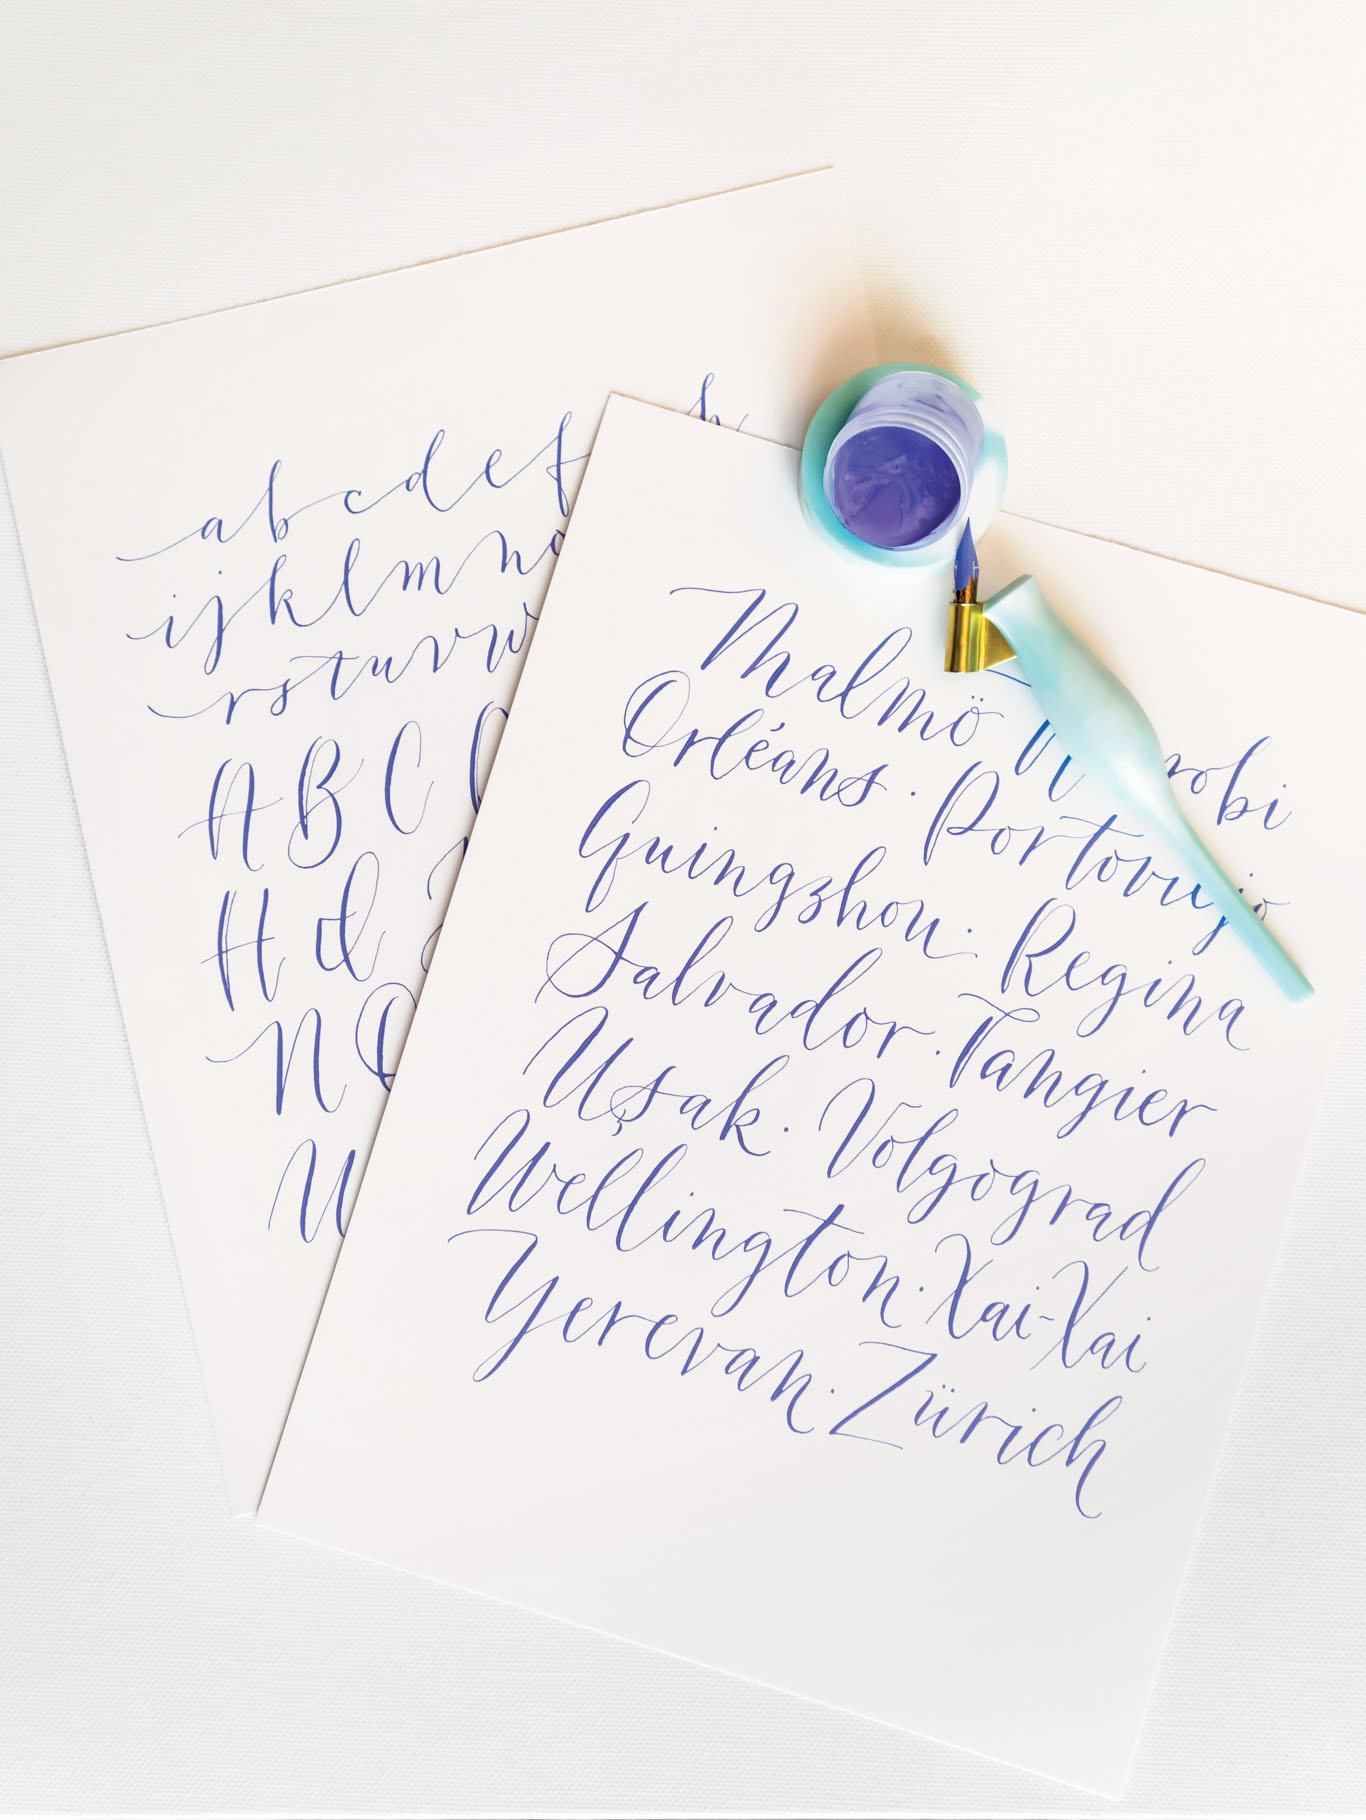 a b c d e f h
i j k l m n o
r s t u v w
A B C
H I
N O
U
Malmö Nairobi
Orléans . Portoviejo
Quingzhou . Regina
Salvador . Tangier
Uşak . Volgograd
Wellington . Xai-Xai
Yerevan . Zürich